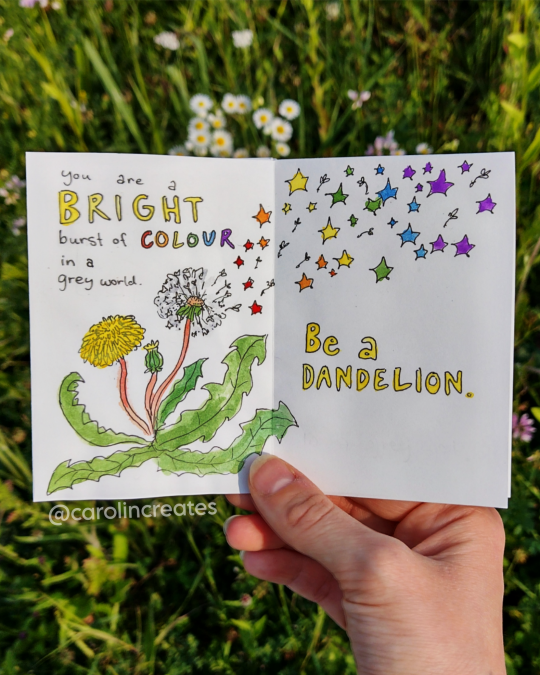 you are a
BRIGHT
burst of COLOUR
in a
grey world.
Be a
DANDELION.
@carolincreates